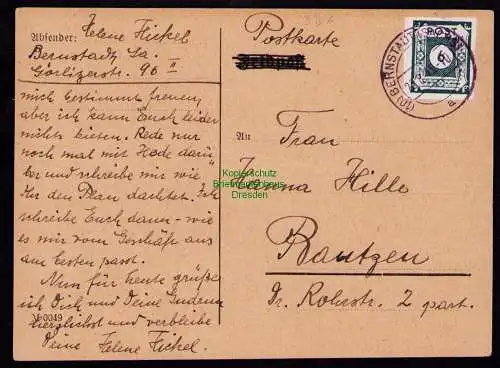 Absender: Helene Fickel
Bernstadt, Sa.
Görlitzerstr. 96 II
mich bestimmt freuen,
aber ich kann Euch leider
nichts bieten. Rede nur
noch mal mit darü
ber und schreibe mir wie
Ihr den Plan dachtet. Ich
schreibe Euch dann - wie
es mir vom Geschäft aus
am besten passt.
Nun für heute grüße
ich Dich und Deine
herzlichst und verbleibe
Deine Helene Fickel.
M 0049
Postkarte
Feldpost
6
BERNSTADT
a
An
Frau
Herma Hille
Bautzen
Dr. Rohrstr. 2 part.
Kopierschutz
Briefmarkenhaus
Dresden